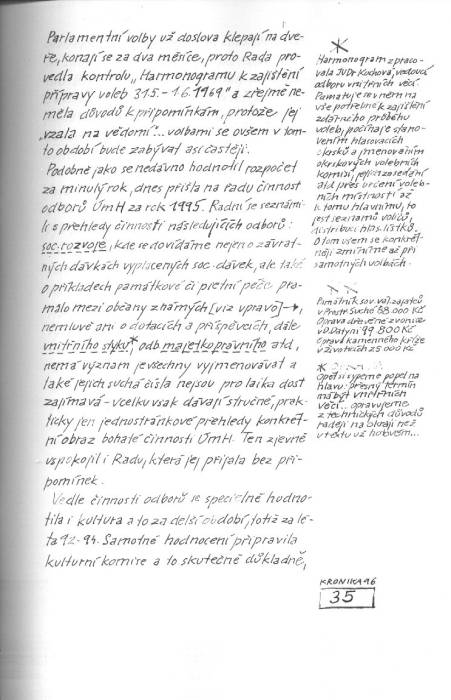 Parlamentní volby už doslova klepají na dve-
ře, konají se za dva měsíce, proto Rada pro-
vedla kontrolu „Harmonogramu k zajištění
přípravy voleb 31.5. - 1.6.1969" a zřejmě ne-
měla důvodů k připomínkám, protože jej
„vzala na vědomí"... volbami se ovšem v tom-
to období bude zabývat asi častěji.
Podobně jako se nedávno hodnotil rozpočet
za minulý rok, dnes přišla na řadu činnost
odborů ÚmH za rok 1995. Radní se seznámi-
li s přehledy činnosti následujících odborů:
soc. rozvoje, kde se dovídáme nejen o závrat-
ných dávkách vyplacených soc. dávek, ale také
o příkladech památkové či pietní péče pra-
málo mezi občany známých [viz vpravo]→,
nemluvě ani o dotacích a příspěvcích, dále
vnitřního styku,* odb. majetkoprávního atd,
nemá význam je všechny vyjmenovávat a
také jejich suchá čísla nejsou pro laika dost
zajímavá - vcelku však dávají stručné, prak-
ticky jen jednostránkové přehledy konkrét-
ní obraz bohaté činnosti ÚmH. Ten zjevně
uspokojil i Radu, která jej přijala bez při-
pomínek.
Vedle činnosti odborů se speciálně hodno-
tila i kultura a to za delší období, totiž za lé-
ta 92-94. Samotné hodnocení připravila
kulturní komise a to skutečně důkladně,
*
Harmonogram zpraco-
vala JUDr Kuchová, vedoucí
odboru vnitřních věcí.
Pamatuje se v něm na
vše potřebné k zajištění
zdárného průběhu
voleb, počínaje stano-
vením hlasovacích
okrsků a jmenováním
okrskových volebních
komisí, jejich zasedání
atd přes určení voleb-
ních místností až
k tomu hlavnímu, to
jest seznamů voličů,
distribuci hlas. lístků.
O tom všem se konkrét-
něji zmíníme až při
samotných volbách.
Památník sov. val. zajatců
v Prostř. Suché 68 000 Kč
Oprava dřevěné zvonice
v D. Datyni 99 800 Kč
Oprava kamenného kříže
v Životicích 25 000 Kč
*
Opět si sypeme popel na
hlavu: přesný termín
má být vnitřních
věcí... opravujeme
z technických důvodů
raději na okraji než
v textu už hotovém...
KRONIKA 96
35